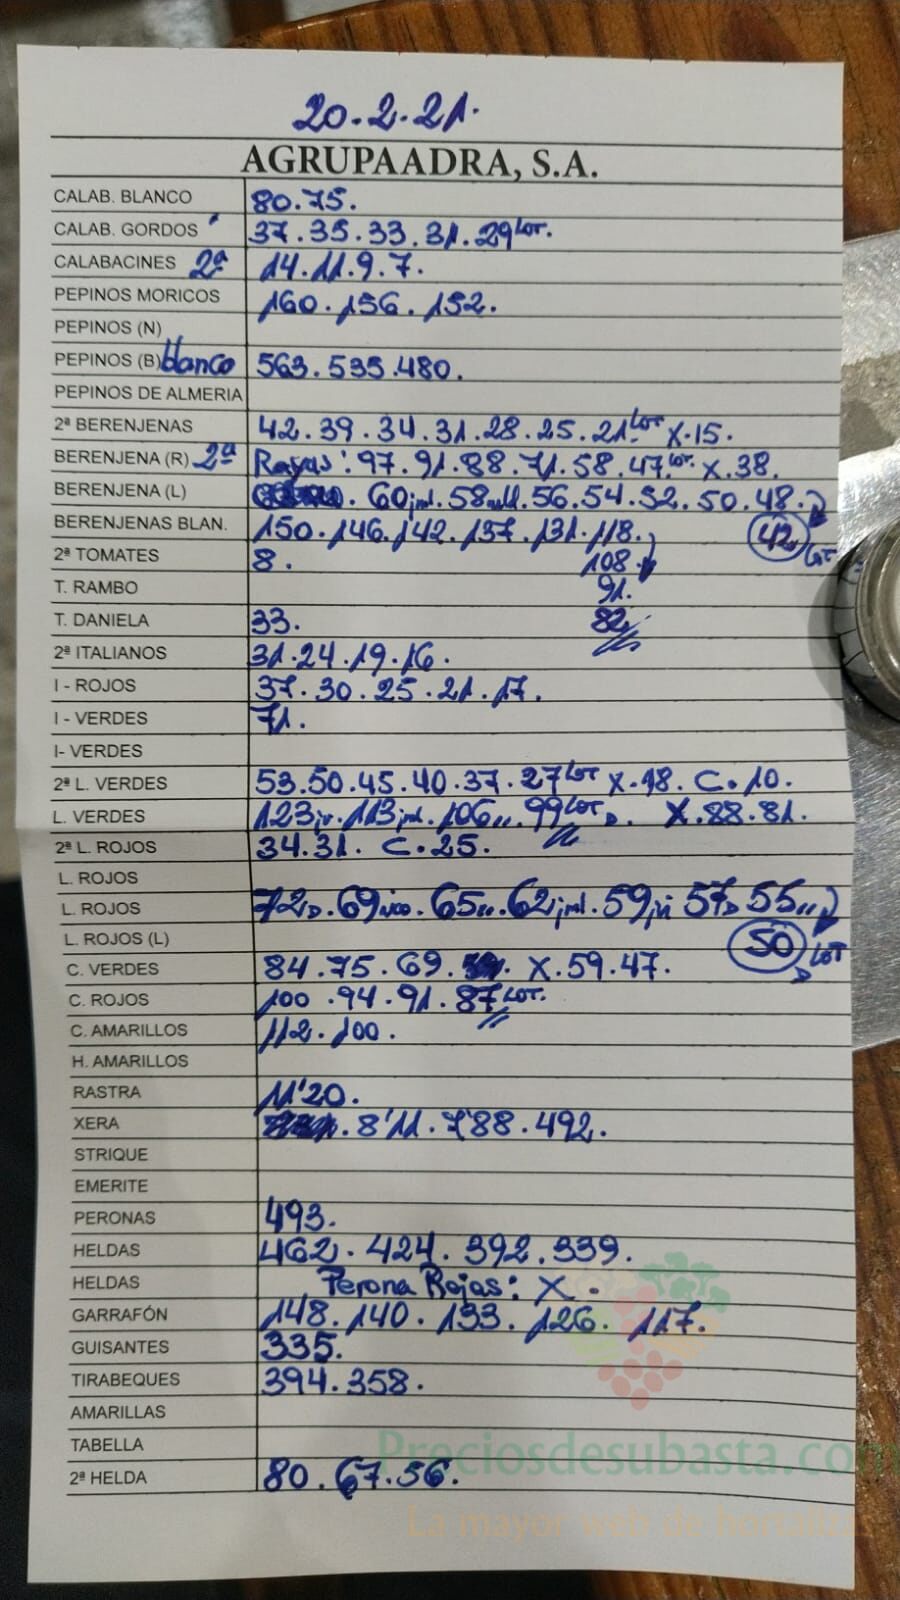 20.2.21.
AGRUPAADRA, S.A.
CALAB. BLANCO 80.75.
CALAB. GORDOS 37.35.33.31.29 LOT.
CALABACINES 2ª 14.11.9.7.
PEPINOS MORICOS 160.156.152.
PEPINOS (N)
PEPINOS (B) blanco 563.535.480.
PEPINOS DE ALMERIA
2ª BERENJENAS 42.39.34.31.28.25.21 LOT X.15.
BERENJENA (R) 2ª Rayas: 97.91.88.71.58.47 LOT. X.38.
BERENJENA (L) 60 58 56.54.52.50.48.
BERENJENAS BLAN. 150.146.142.137.131.118. 42 LOT
2ª TOMATES 8. 108.
T. RAMBO 91.
T. DANIELA 33. 82
2ª ITALIANOS 31.24.19.16.
I - ROJOS 37.30.25.21.17.
I - VERDES 71.
I- VERDES
2ª L. VERDES 53.50.45.40.37.27 LOT X.18. C.10.
L. VERDES 123 113 106,,.99 LOT X.88.81.
2ª L. ROJOS 34.31. C.25.
L. ROJOS
L. ROJOS 72.69 65,,.62 59 57 55,,
L. ROJOS (L) 50 LOT
C. VERDES 84.75.69. X.59.47.
C. ROJOS 100.94.91.87 LOT.
C. AMARILLOS 112.100.
H. AMARILLOS
RASTRA 11'20.
XERA 8'11.7'88.492.
STRIQUE
EMERITE
PERONAS 493.
HELDAS 462.424.392.339.
HELDAS Perona Rojas: X.
GARRAFÓN 148.140.133.126.117.
GUISANTES 335.
TIRABEQUES 394.358.
AMARILLAS
TABELLA
Preciosdesubasta.com
2ª HELDA 80.67.56.
La mayor web de hortalizas